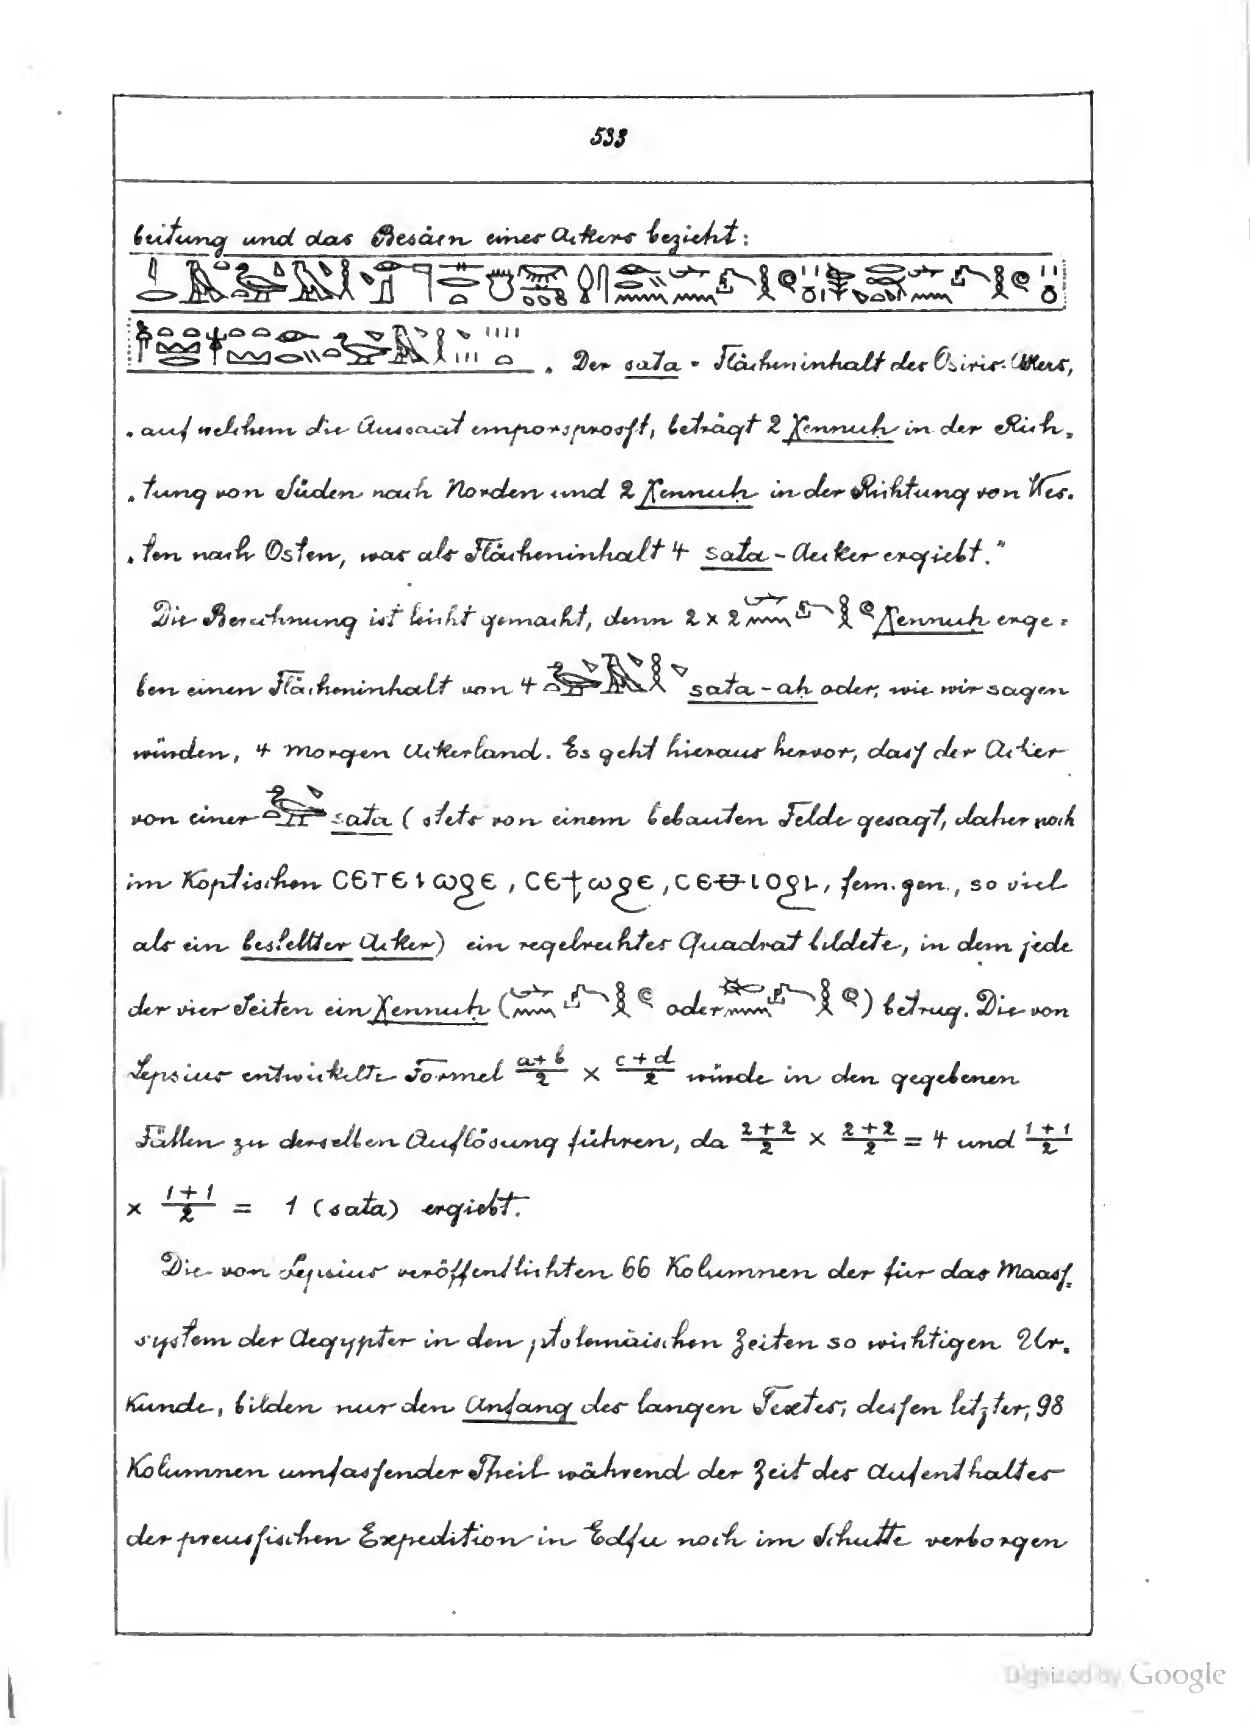 533
beitung und das Besäen eines Ackers bezieht:
. Der sata-Flächeninhalt des Osiris-Ackers,
auf welchem die Aussaat emporsprosst, beträgt 2 Xennuh in der Rich-
tung von Süden nach Norden und 2 Xennuh in der Richtung von Wes-
ten nach Osten, was als Flächeninhalt 4 sata-Acker ergiebt."
Die Berechnung ist leicht gemacht, denn 2 x 2 Xennuh erge-
ben einen Flächeninhalt von 4 sata-ah oder, wie wir sagen
würden, 4 Morgen Ackerland. Es geht hieraus hervor, dass der Acker
von einer sata (stets von einem bebauten Felde gesagt, daher noch
im Koptischen ⲤⲈⲦⲈⲓⲱϩⲈ, ⲤⲈϯⲱϩⲈ, fem. gen., so viel
als ein bestellter Acker) ein regelrechtes Quadrat bildete, in dem jede
der vier Seiten ein Xennuh ( oder ) betrug. Die von
Lepsius entwickelte Formel a+b/2 × c+d/2 würde in den gegebenen
Fällen zu derselben Auflösung führen, da 2+2/2 × 2+2/2 = 4 und 1+1/2
× 1+1/2 = 1 (sata) ergiebt.
Die von Lepsius veröffentlichten 66 Kolumnen der für das Maass-
system der Aegypter in den ptolemäischen Zeiten so wichtigen Ur-
kunde, bilden nur den Anfang des langen Textes, dessen letzter, 98
Kolumnen umfassender Theil während der Zeit des Aufenthaltes
der preussischen Expedition in Edfu noch im Schutte verborgen
Digitized by Google